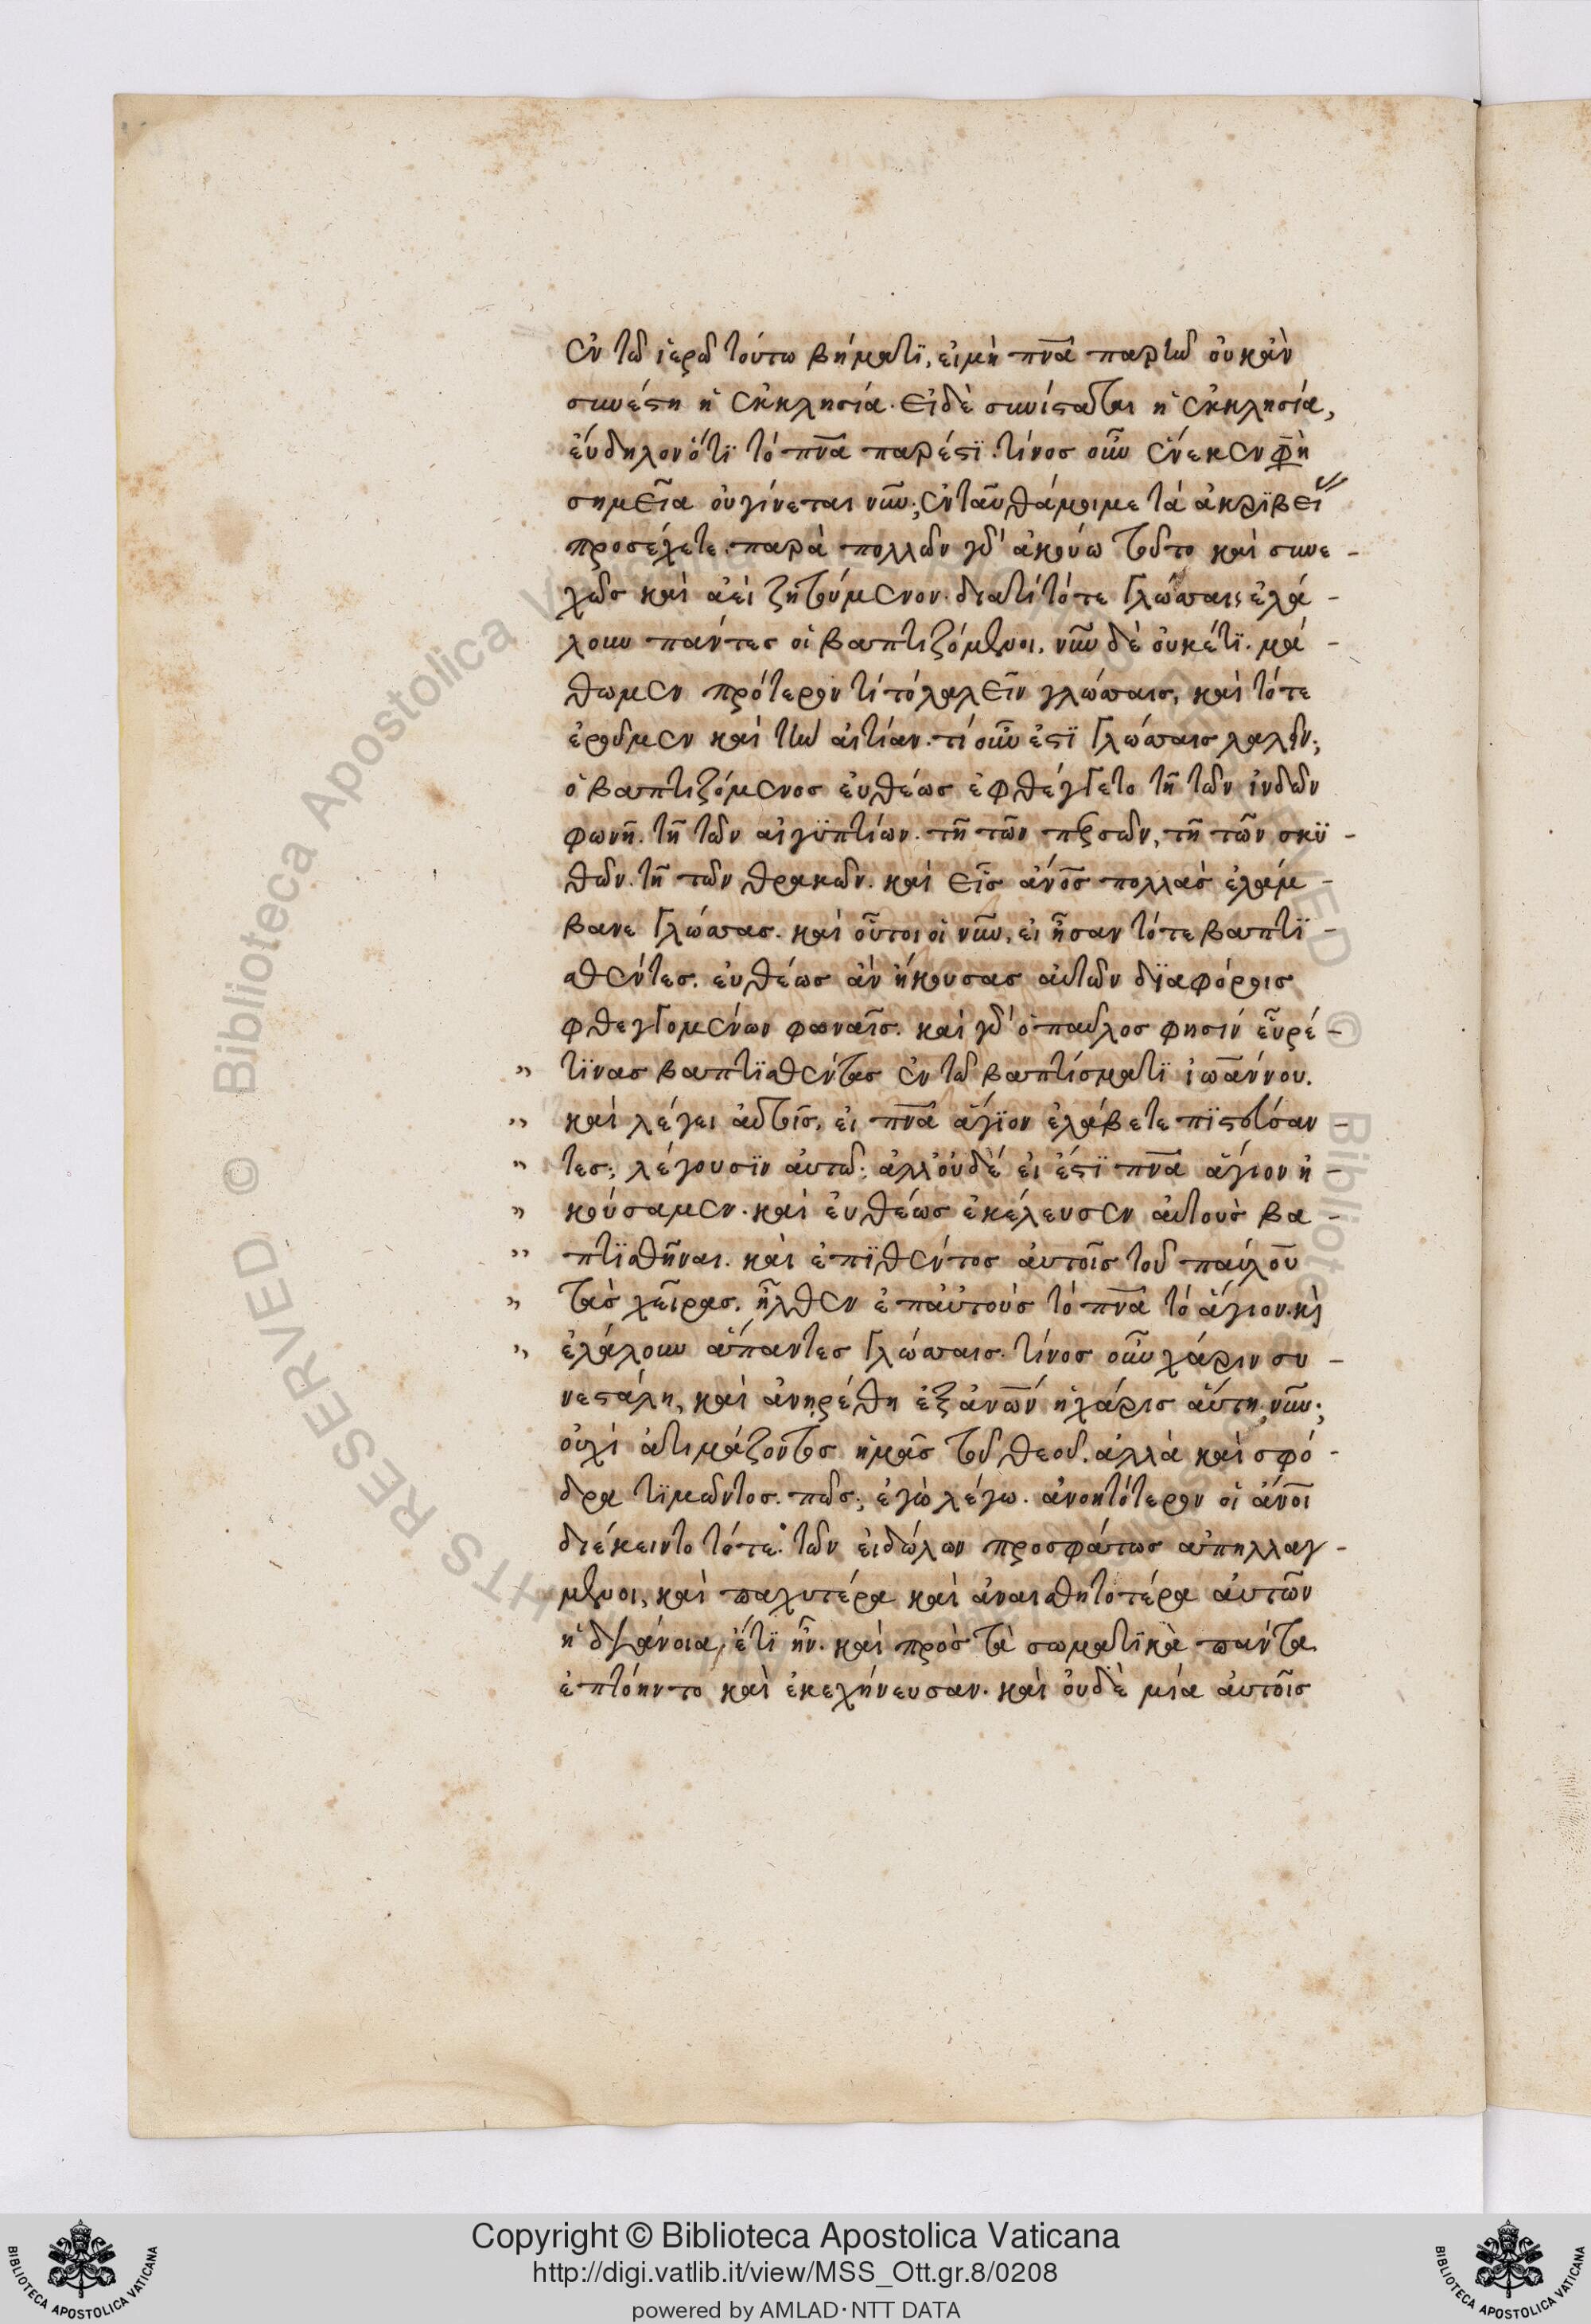 ἐν τῶ ἱερῶ τούτω βήματϊ, εἰμὴ πνᾶ παρῆν οὐκἂν
συνέστη ἡ ἐκκλησία. εἰδὲ συνίσταται ἡ ἐκκλησία,
ἐύδηλονότϊ τὸ πνᾶ παρέστϊ. τίνος οὖν ἕνεκεν φησὶ
σημεῖα οὐγίνεται νῦν; ἐνταῦθάμοιμε τὰ ἀκρϊβεῖ
προσέχετε. παρὰ πολλῶν γὰρ ἀκούω τοῦτο καὶ συνε-
χῶς καὶ ἀεὶ ζητούμενον. διατίτότε γλώσσαις ἐλά-
λουν πάντες οἱ βαπτιζόμενοι, νῦν δὲ οὐκέτϊ. μά-
θωμεν πρότερον τί τόλαλεῖν γλώσσαις, καὶ τότε
ἐροῦμεν καὶ τὴν αἰτίαν. τί οὖν ἐστϊ γλώσσαις λαλεῖν;
ὁ βαπτιζόμενος ἐυθέως ἐφθέγγετο τῆ τῶν ἰνδῶν
φωνῆ. τῆ τῶν αἰγϋπτίων. τῆ τῶν περσῶν, τῆ τῶν σκϋ-
θῶν. τῆ τῶν θρακῶν. καὶ εἷς ἄνος πολλὰς ἐλάμ-
βανε γλώσσας. καὶ οὗτοι οἱ νῦν, εἰ ἦσαν τότε βαπτϊ-
σθέντες. ἐυθέως ἂν ἤκουσας αὐτῶν δϊαφόροις
φθεγγομένων φωναῖς. καὶ γὰρ ὁ παῦλος φησὶν εὗρέ-
" τϊνας βαπτϊσθέντας ἐν τῶ βαπτίσματϊ ἰωάννου.
" καὶ λέγει αὐτοῖς, εἰ πνᾶ ἅγϊον ἐλάβετε πϊστεύσαν-
" τες; λέγουσϊν ἀυτῶ; ἀλλ'ὀυδὲ εἰ ἔστϊ πνᾶ ἅγιον ἠ-
" κούσαμεν. καὶ ἐυθέως ἐκέλευσεν αὐτοὺς βα-
" πτϊσθῆναι. καὶ ἐπϊθέντος ἀυτοῖς τοῦ παύλου
" τὰς χεῖρας, ἦλθεν ἐπ'ἀυτοὺς τὸ πνᾶ τὸ ἅγιον. κὶ
" ἐλάλουν ἅπαντες γλώσσαις. τίνος οὖν χάριν συ-
νεστάλη, καὶ ἀνηρέθη ἐξ ἀνῶν ἡ χάρις ἅυτη νῦν;
οὐχὶ ἀτιμάζοντος ἡμᾶς τοῦ θεοῦ. ἀλλὰ καὶ σφό-
δρα τϊμῶντος. πῶς; ἐγὼ λέγω. ἀνοητότερον οἱ ἄνοι
διέκειντο τότε. τῶν εἰδώλων προσφάτως ἀπηλλαγ-
μένοι, καὶ παχυτέρα καὶ ἀναισθητοτέρα ἀυτῶν
ἡ διάνοια, ἔτϊ ἦν. καὶ πρὸς τὰ σωματϊκὰ πάντα
ἐπτόηντο καὶ ἐκεχήνευσαν. καὶ ὀυδὲ μία ἀυτοῖς
Copyright © Biblioteca Apostolica Vaticana
http://digi.vatlib.it/view/MSS_Ott.gr.8/0208
powered by AMLAD·NTT DATA